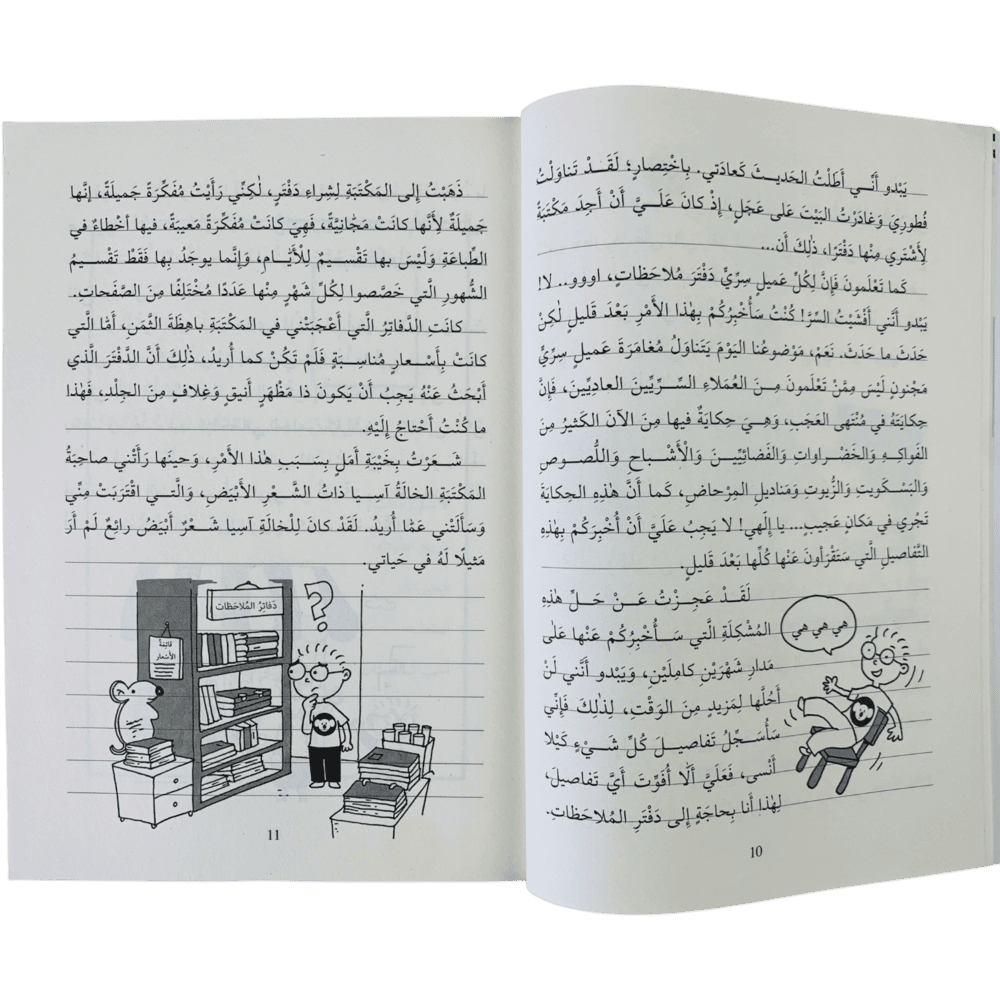 يَبْدو أَنّي أَطَلْتُ الحَديثَ كَعادَتي. بِاخْتِصارٍ؛ لَقَدْ تَناوَلْتُ
فُطوريَ وَغادَرْتُ البَيْتَ عَلى عَجَلٍ، إِذْ كانَ عَلَيَّ أَنْ أَجِدَ مَكْتَبَةً
لِأَشْتَرِيَ مِنْها دَفْتَرًا، ذٰلِكَ أَن...
كَما تَعْلَمونَ فَإِنَّ لِكُلِّ عَميلٍ سِرِّيٍّ دَفْتَرَ مُلاحَظاتٍ، اووو.. لا!
يَبْدو أَنَّني أَفْشَيْتُ السِّرَّ! كُنْتُ سَأُخْبِرُكُمْ بِهٰذا الأَمْرِ بَعْدَ قَليلٍ لٰكِنْ
حَدَثَ ما حَدَثَ. نَعَمْ، مَوْضوعُنا اليَوْمَ يَتَناوَلُ مُغامَرَةَ عَميلٍ سِرِّيٍّ
مَجْنونٍ لَيْسَ مِمَّنْ تَعْلَمونَ مِنَ العُمَلاءِ السِّرِّيّينَ العادِيّينَ، فَإِنَّ
حِكايَتَهُ في مُنْتَهى العَجَبِ، وَهِيَ حِكايَةٌ فيها مِنَ الآنَ الكَثيرُ مِنَ
الفَواكِهِ وَالخَضْراواتِ وَالفَضائِيّينَ وَالأَشْباحِ وَاللُّصوصِ
وَالبَسْكَويتِ وَالزُّيوتِ وَمَناديلِ المِرْحاضِ، كَما أَنَّ هٰذِهِ الحِكايَةَ
تَجْري في مَكانٍ عَجيبٍ... يا إِلٰهي! لا يَجِبُ عَلَيَّ أَنْ أُخْبِرَكُمْ بِهٰذِهِ
التَّفاصيلِ الَّتي سَتَقْرَأونَ عَنْها كُلِّها بَعْدَ قَليلٍ.
لَقَدْ عَجِزْتُ عَنْ حَلِّ هٰذِهِ
المُشْكِلَةِ الَّتي سَأُخْبِرُكُمْ عَنْها عَلى
مَدارِ شَهْرَيْنِ كامِلَيْنِ، وَيَبْدو أَنَّني لَنْ
أَحُلَّها لِمَزيدٍ مِنَ الوَقْتِ، لِذٰلِكَ فَإِنّي
سَأُسَجِّلُ تَفاصيلَ كُلِّ شَيْءٍ كَيْلا
أَنْسى، فَعَلَيَّ أَلّا أُفَوِّتَ أَيَّ تَفاصيلَ،
لِهٰذا أَنا بِحاجَةٍ إِلى دَفْتَرِ المُلاحَظاتِ.
هي هي هي
10
ذَهَبْتُ إِلى المَكْتَبَةِ لِشِراءِ دَفْتَرٍ، لٰكِنّي رَأَيْتُ مُفَكِّرَةً جَميلَةً، إِنَّها
جَميلَةٌ لِأَنَّها كانَتْ مَجّانِيَّةً، فَهِيَ كانَتْ مُفَكِّرَةً مَعيبَةً، فيها أَخْطاءٌ في
الطِّباعَةِ وَلَيْسَ بِها تَقْسيمٌ لِلْأَيّامِ، وَإِنَّما يوجَدُ بِها فَقَطْ تَقْسيمُ
الشُّهورِ الَّتي خَصَّصوا لِكُلِّ شَهْرٍ مِنْها عَدَدًا مُخْتَلِفًا مِنَ الصَّفَحاتِ.
كانَتِ الدَّفاتِرُ الَّتي أَعْجَبَتْني في المَكْتَبَةِ باهِظَةَ الثَّمَنِ، أَمّا الَّتي
كانَتْ بِأَسْعارٍ مُناسِبَةٍ فَلَمْ تَكُنْ كَما أُريدُ، ذٰلِكَ أَنَّ الدَّفْتَرَ الَّذي
أَبْحَثُ عَنْهُ يَجِبُ أَنْ يَكونَ ذا مَظْهَرٍ أَنيقٍ وَغِلافٍ مِنَ الجِلْدِ، فَهٰذا
ما كُنْتُ أَحْتاجُ إِلَيْهِ.
شَعَرْتُ بِخَيْبَةِ أَمَلٍ بِسَبَبِ هٰذا الأَمْرِ، وَحينَها رَأَتْني صاحِبَةُ
المَكْتَبَةِ الخالَةُ آسِيا ذاتُ الشَّعْرِ الأَبْيَضِ، وَالَّتي اقْتَرَبَتْ مِنّي
وَسَأَلَتْني عَمّا أُريدُ. لَقَدْ كانَ لِلْخالَةِ آسِيا شَعْرٌ أَبْيَضُ رائِعٌ لَمْ أَرَ
مَثيلًا لَهُ في حَياتي.
دَفاتِرُ المُلاحَظات
?
قائِمَةُ
الأَسْعار
11